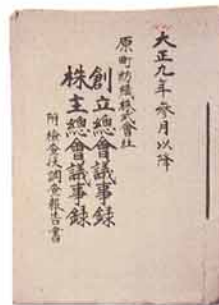 大正九年参月以降
原町紡織株式會社
創立總會議事録
株主總會議事録
附檢査役調査報告書